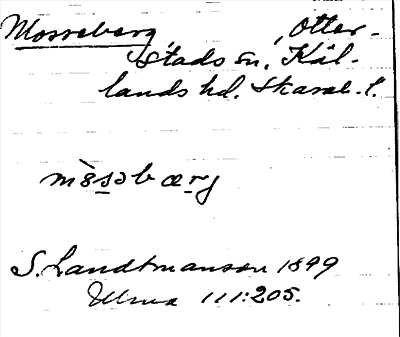 Mosseberg, Otter-
stads sn, Kål-
lands hd. Skarab. l.
mòsəbærg
S. Landtmanson 1899
Ulma 111:205.